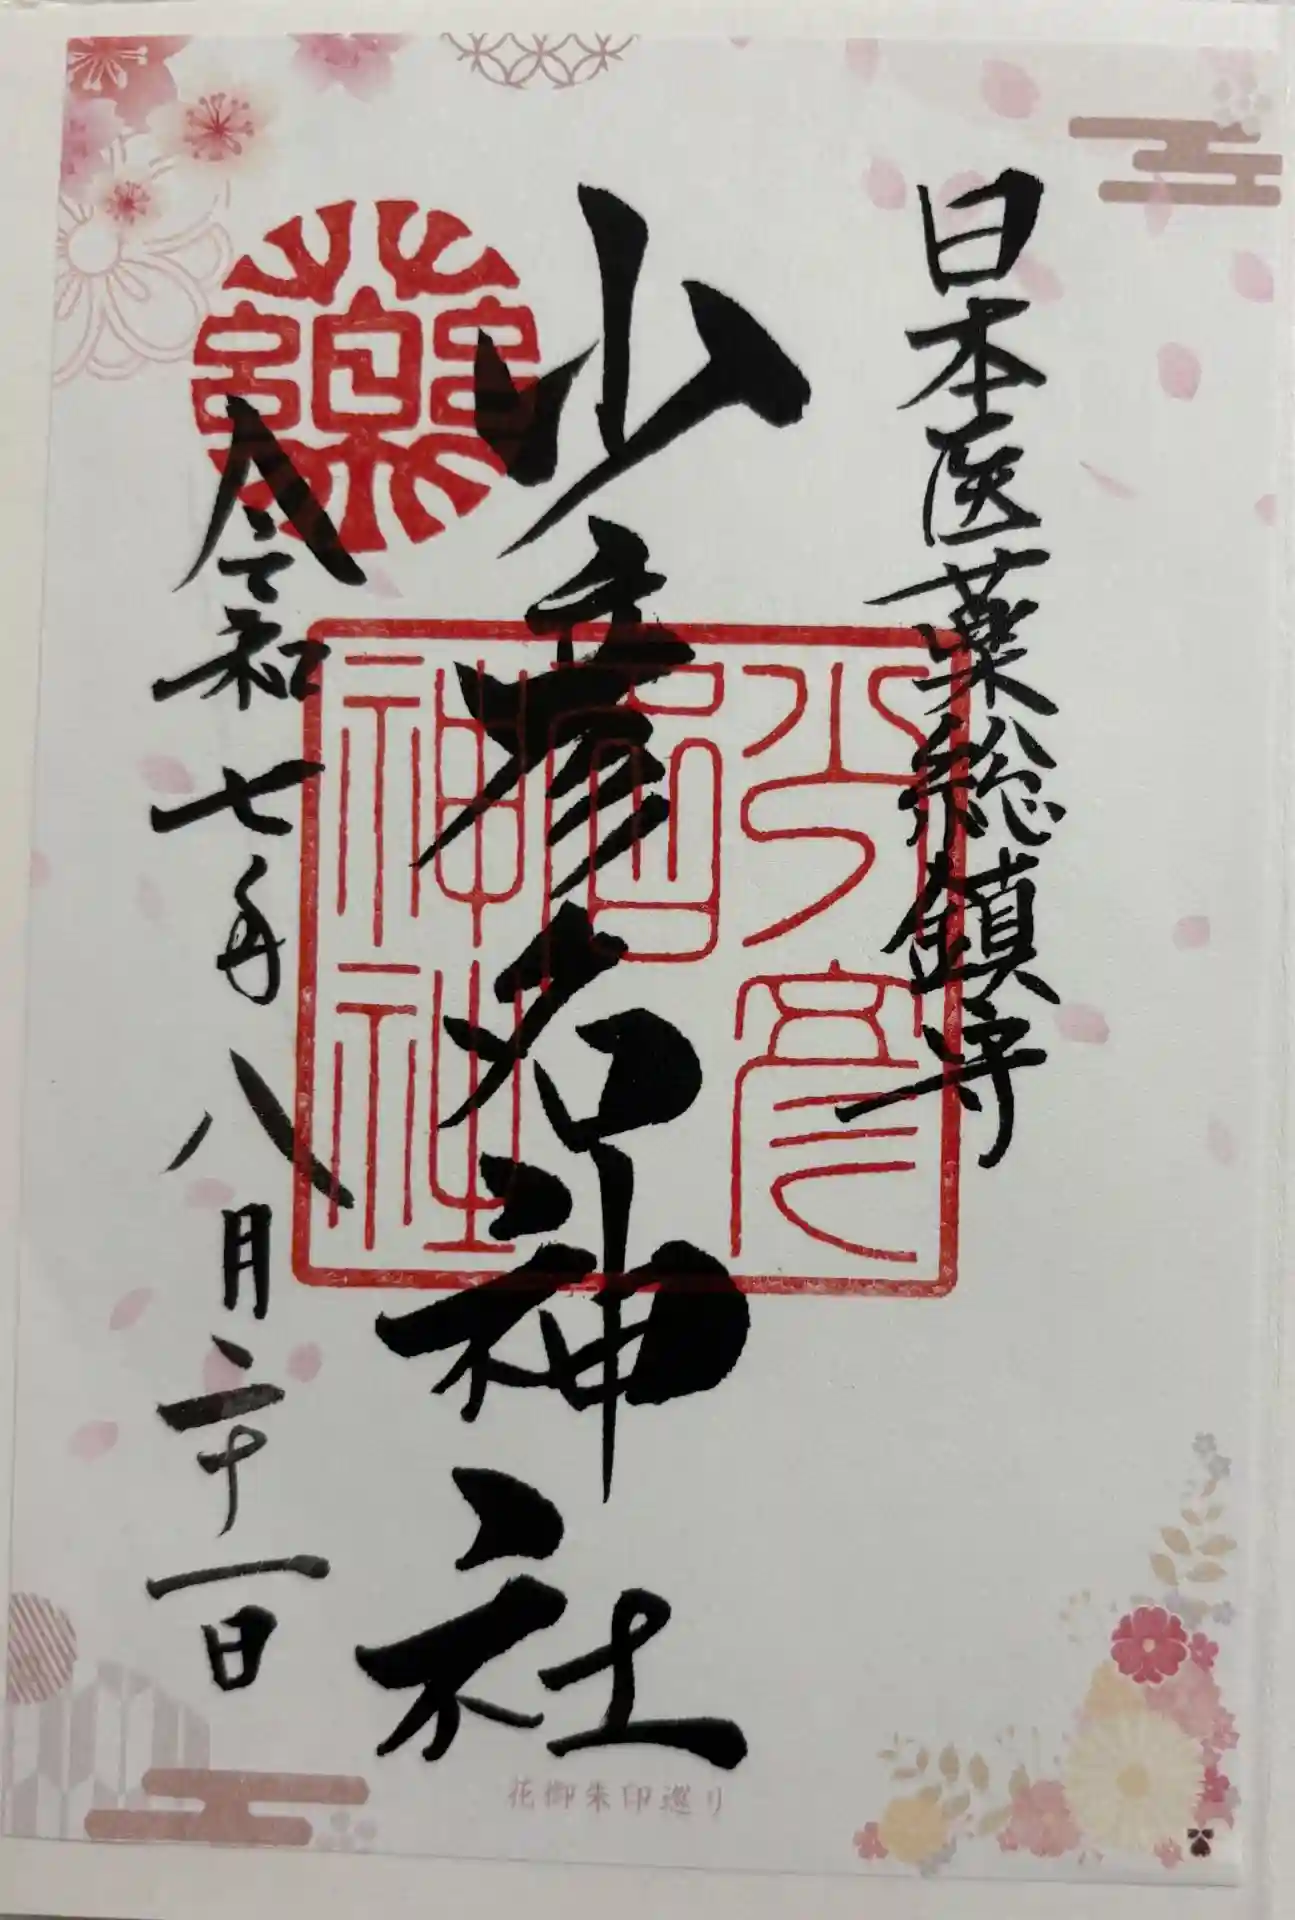 日本医薬総鎮守
少彦名神社
令和七年八月二十一日
藥
少彦名神社
花御朱印巡り